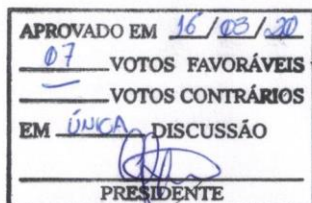 APROVADO EM 16/03/20
07 VOTOS FAVORÁVEIS
— VOTOS CONTRÁRIOS
EM ÚNICA DISCUSSÃO
PRESIDENTE